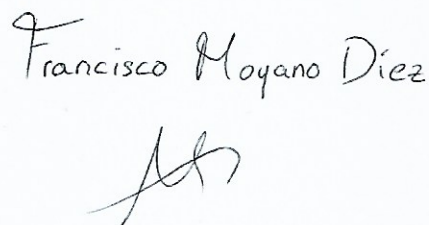 Francisco Moyano Díez